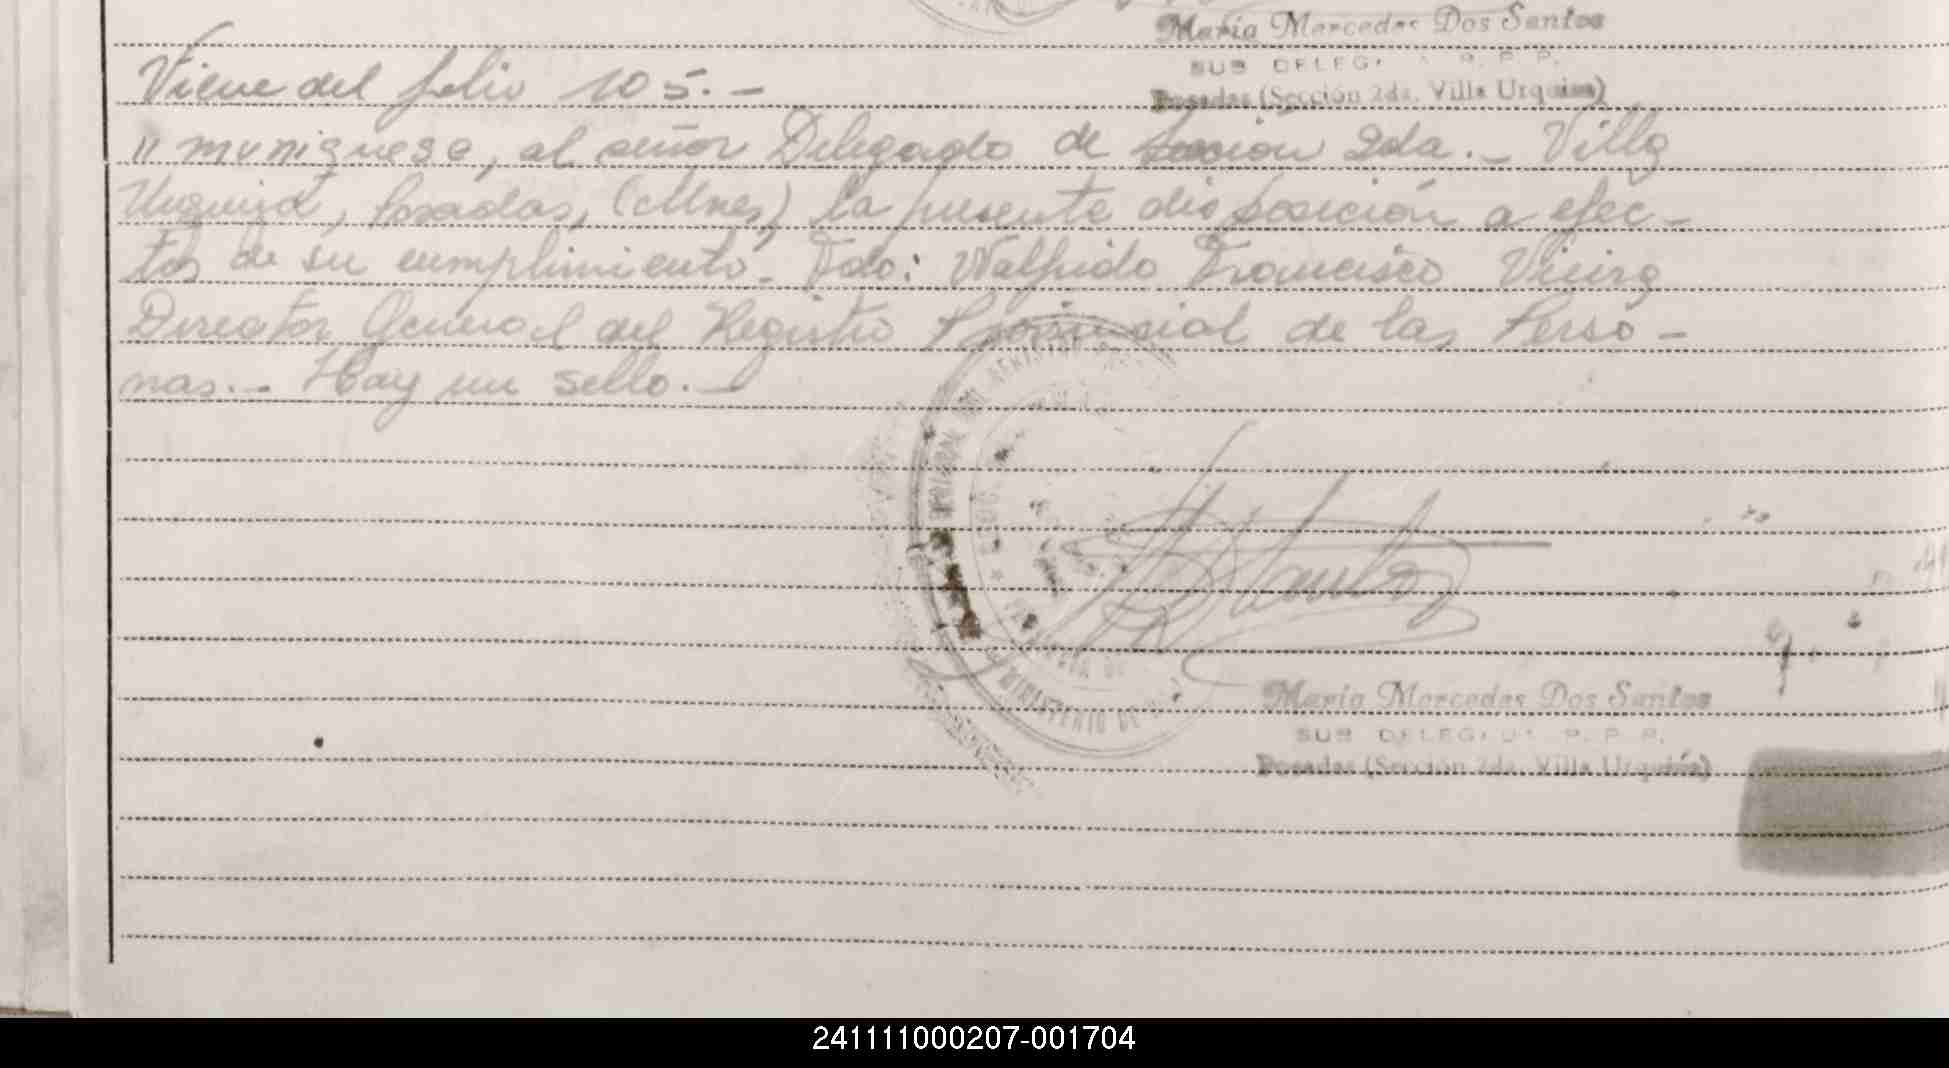 María Mercedes Dos Santos
SUB DELEG. R. P. P.
Posadas (Sección 2da. Villa Urquiza)
Viene del folio 105.-
" muniquese, al señor Delegado de Sección 2da.- Villa
Urquiza, Posadas, (Mnes) la presente disposición a efec-
tos de su cumplimiento.- Fdo: Walfrido Francisco Vieira
Director General del Registro Provincial de las Perso-
nas.- Hay un sello.-
MINISTERIO DE
María Mercedes Dos Santos
SUB DELEG. R. P. P.
Posadas (Sección 2da. Villa Urquiza)
241111000207-001704